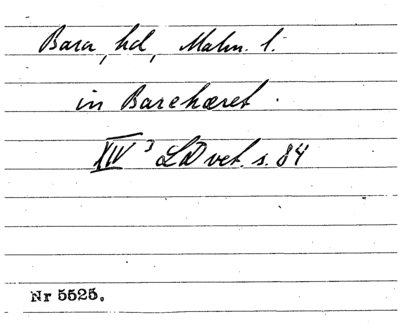 Bara, hd, Malm. l.
in Barehæret.
XIV 3 LD vet. s. 84
Nr 5525.